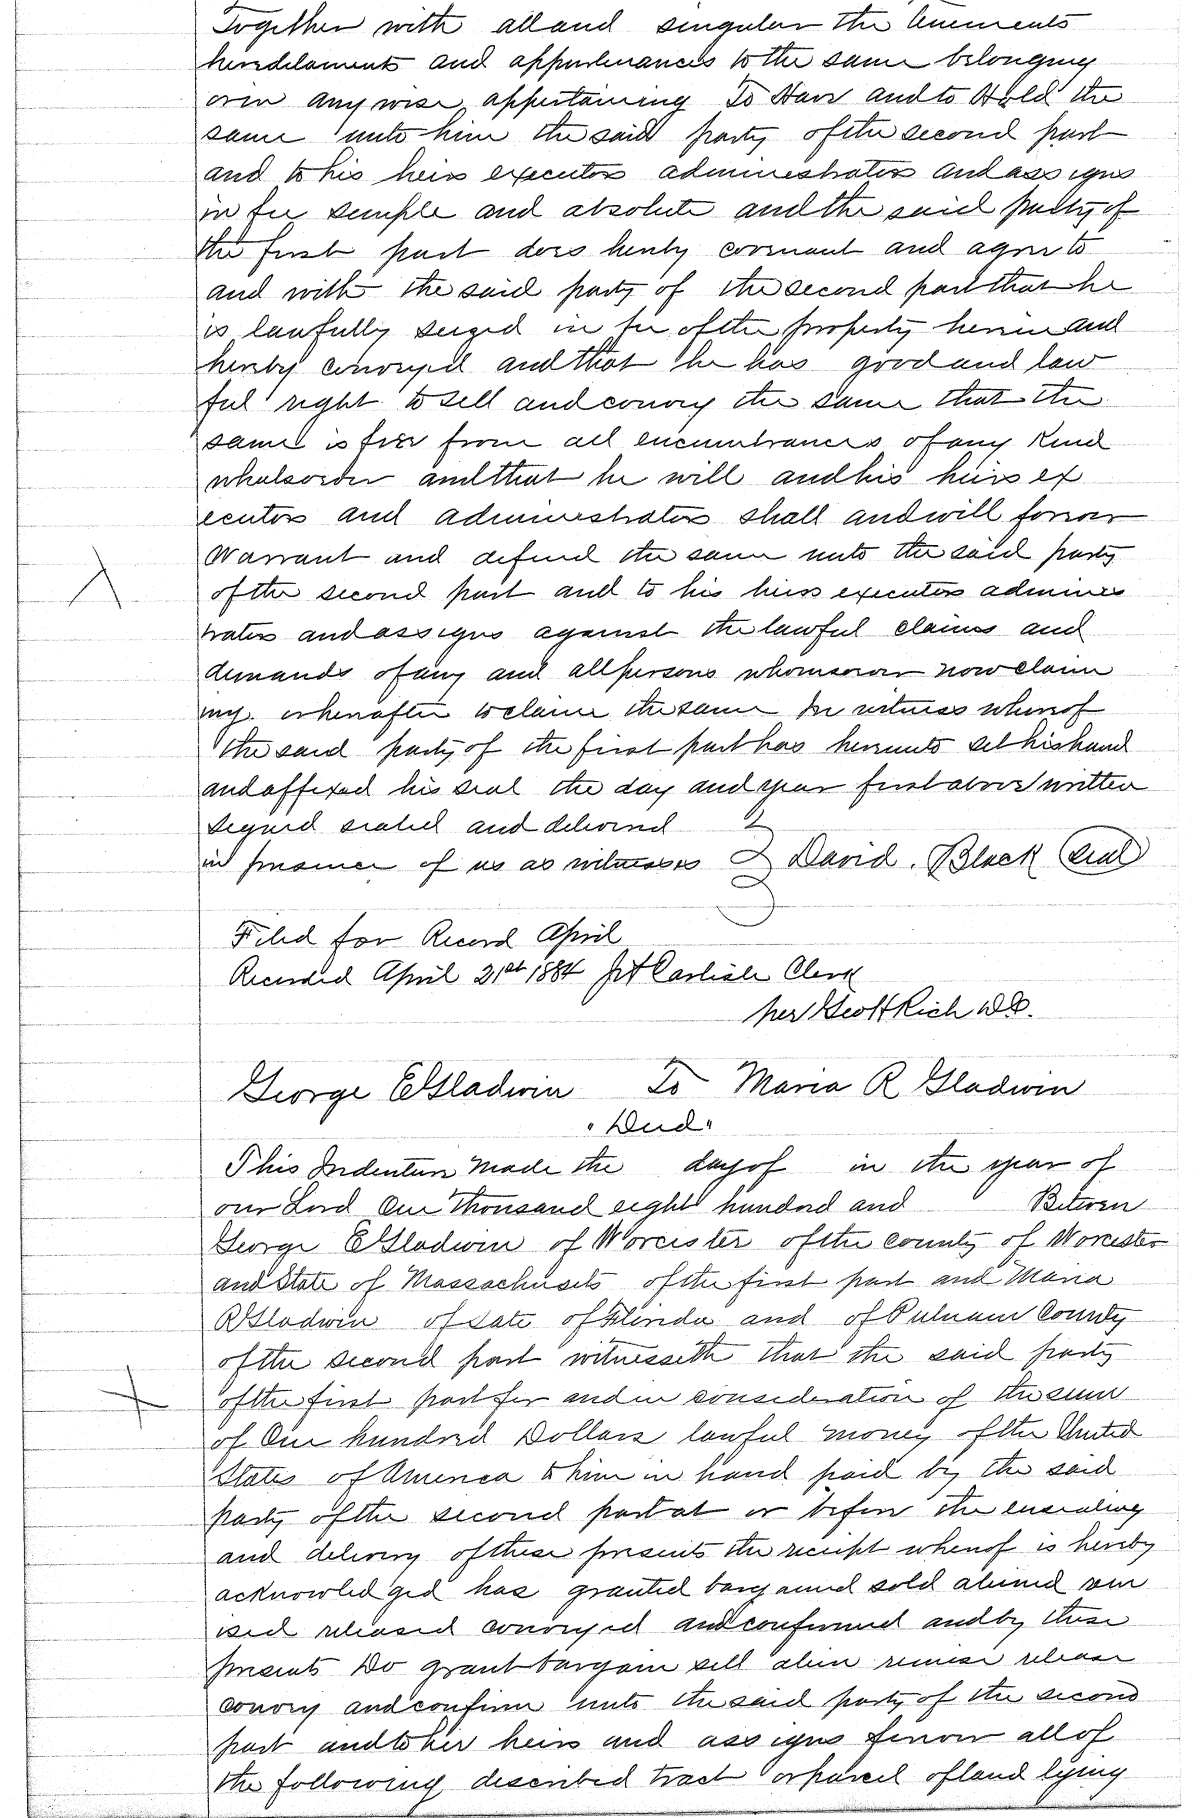 Together with all and singular the tenements
heredilaments and appurtenances to the same belonging
or in any wise appertaining To Have and to Hold the
same unto him the said party of the second part
and to his heirs executors administrators and assigns
in fee simple and absolute and the said party of
the first part does hereby covenant and agree to
and with the said party of the second part that he
is lawfully seized in fee of the property herein and
hereby conveyed and that he has good and law
ful right to sell and convey the same that the
same is free from all encumbrances of any kind
whatsoever and that he will and his heirs ex
ecutors and administrators shall and will forever
Warrant and defend the same unto the said party
of the second part and to his heirs executors adminis
trators and assigns against the lawful claims and
demands of any and all persons whomsoever now claim
ing or hereafter to claim the same In witness whereof
the said party of the first part has hereunto set his hand
and affixed his seal the day and year first above written
Signed sealed and delivered
in presence of us as witnesses David. Black Seal
Filed for Record April
Recorded April 21st 1884 Carlisle Clerk
per Geo H Rich D.C.
George E Gladwin To Maria R Gladwin
"Deed"
This Indenture Made the day of in the year of
our Lord One Thousand eight hundred and Between
George E Gladwin of Worcester of the county of Worcester
and State of Massachusets of the first part and Maria
R Gladwin of State of Florida and of Putnam County
of the second part witnesseth that the said party
of the first part for and in consideration of the sum
of One hundred Dollars lawful money of the United
States of America to him in hand paid by the said
party of the second part at or before the ensealing
and delivery of these presents the receipt whereof is hereby
acknowledged has granted bargained sold aliened rem
ised released conveyed and confirmed and by these
presents Do grant bargain sell alien remise release
convey and confirm unto the said party of the second
part and to her heirs and assigns forever all of
the following described tract or parcel of land lying